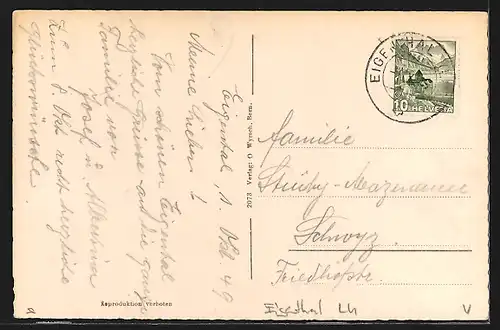 Eigental, 1. Okt 49
Meine Lieben!
Vom schönen Eigental
herzliche Grüsse an die ganze
Familie von
Josef u. Albertina
Zum 8. Okt recht herzliche
Glückwünsche.
2073 Verlag: O. Wyrsch, Bern.
Reproduktion verboten
EIGENTHAL
10 HELVETIA
Familie
Schwyz
Friedhofstr.
Eigenthal LU
V